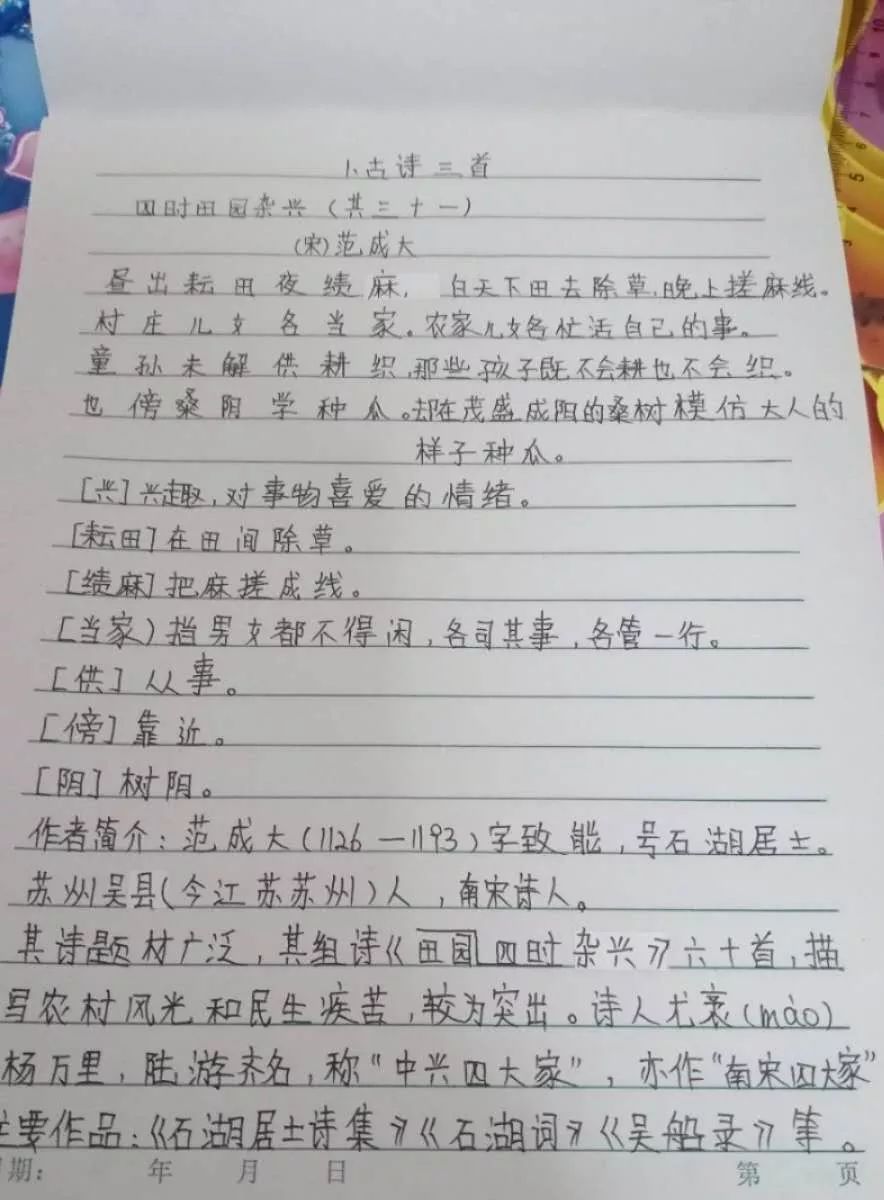 1、古诗三首
四时田园杂兴(其三十一)
(宋)范成大
昼出耘田夜绩麻,白天下田去除草,晚上搓麻线。
村庄儿女各当家。农家儿女各忙活自己的事。
童孙未解供耕织,那些孩子既不会耕也不会织。
也傍桑阴学种瓜。却在茂盛成阳的桑树模仿大人的
样子种瓜。
[兴]兴趣,对事物喜爱的情绪。
[耘田]在田间除草。
[绩麻]把麻搓成线。
[当家)指男女都不得闲,各司其事,各管一行。
[供]从事。
[傍]靠近。
[阴]树阴。
作者简介:范成大(1126—1193)字致能,号石湖居士。
苏州吴县(今江苏苏州)人,南宋诗人。
其诗题材广泛,其组诗《田园四时杂兴》六十首,描
写农村风光和民生疾苦,较为突出。诗人尤袤(mào)
杨万里,陆游齐名,称“中兴四大家”,亦作“南宋四大家”
主要作品:《石湖居士诗集》《石湖词》《吴船录》等。
期: 年 月 日 第 页